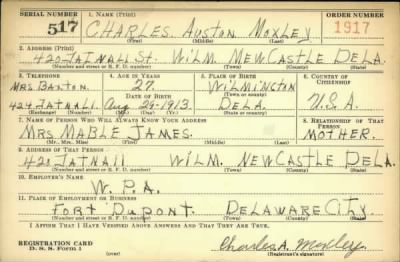 SERIAL NUMBER 1. NAME (Print) ORDER NUMBER
517 CHARLES AUSTON MOXLEY 1917
(First) (Middle) (Last)
2. ADDRESS (Print)
420 TATNALL St. WILM. NEWCASTLE DELA.
(Number and street or R. F. D. number) (Town) (County) (State)
3. TELEPHONE 4. AGE IN YEARS 5. PLACE OF BIRTH 6. COUNTRY OF CITIZENSHIP
MRS BAXTON. 27. WILMINGTON
DATE OF BIRTH (Town or county)
424 TATNALL. Aug 29-1913. DELA. U.S.A.
(Exchange) (Number) (Mo.) (Day) (Yr.) (State or country)
7. NAME OF PERSON WHO WILL ALWAYS KNOW YOUR ADDRESS 8. RELATIONSHIP OF THAT PERSON
MRS MABLE JAMES. MOTHER.
(Mr., Mrs., Miss) (First) (Middle) (Last)
9. ADDRESS OF THAT PERSON
420 TATNALL WILM. NEWCASTLE DELA.
(Number and street or R. F. D. number) (Town) (County) (State)
10. EMPLOYER'S NAME
W. P. A.
11. PLACE OF EMPLOYMENT OR BUSINESS
FORT DUPONT. DELAWARE CITY.
(Number and street or R. F. D. number) (Town) (County) (State)
I AFFIRM THAT I HAVE VERIFIED ABOVE ANSWERS AND THAT THEY ARE TRUE.
REGISTRATION CARD
D. S. S. Form 1 (over) Charles A. Moxley
(Registrant's signature)